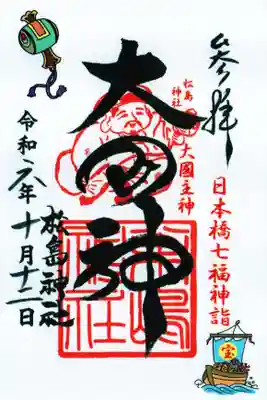 参拝
日本橋七福神詣
松島
神社
大國主神
大国神
令和六年十月十二日
松島神社
宝